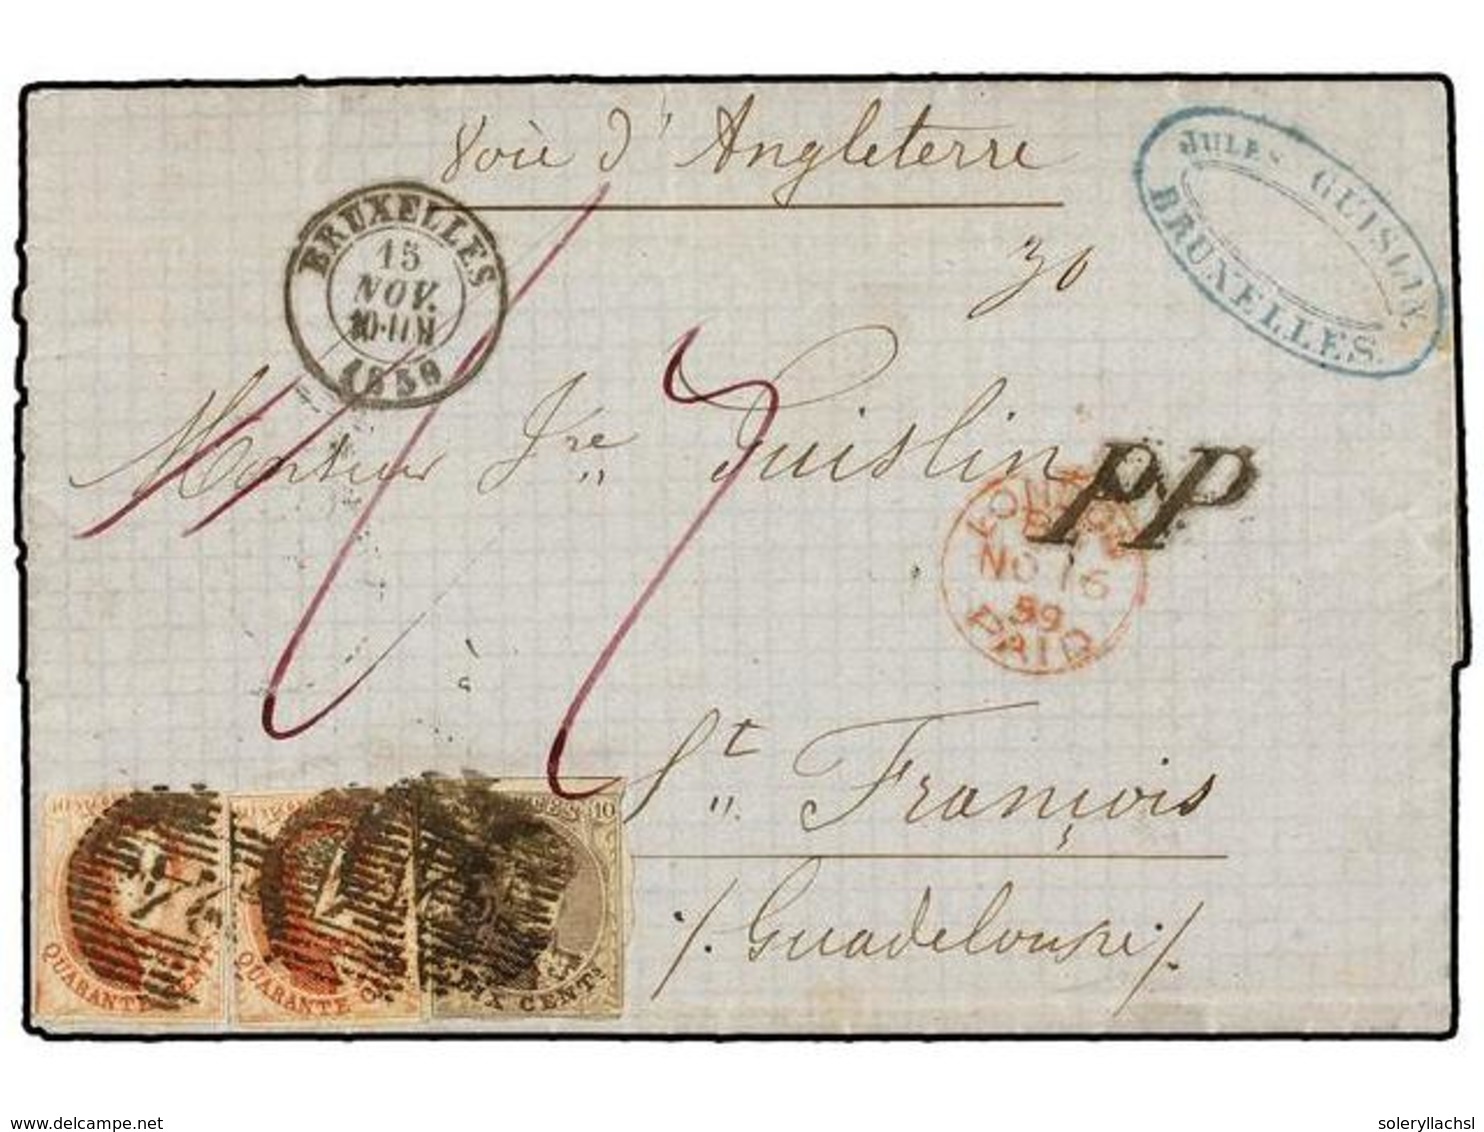 Voie d'Angleterre
JULES GUISLIN
BRUXELLES.
BRUXELLES
15
NOV.
1859
30
Monsieur Jre Guislin
PP
LONDON
NO 16
59
PAID
St François
10
QUARANTE CENTS
QUARANTE C
DIX CENTS
/. Guadeloupe ./
www.delcampe.net
soleryllachsl